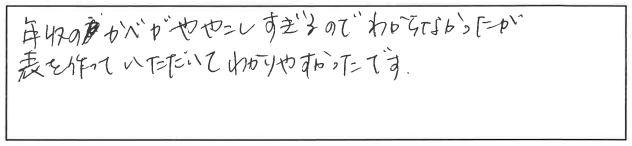 年収のかべがややこしすぎるのでわからなかったが
表を作っていただいてわかりやすかったです.